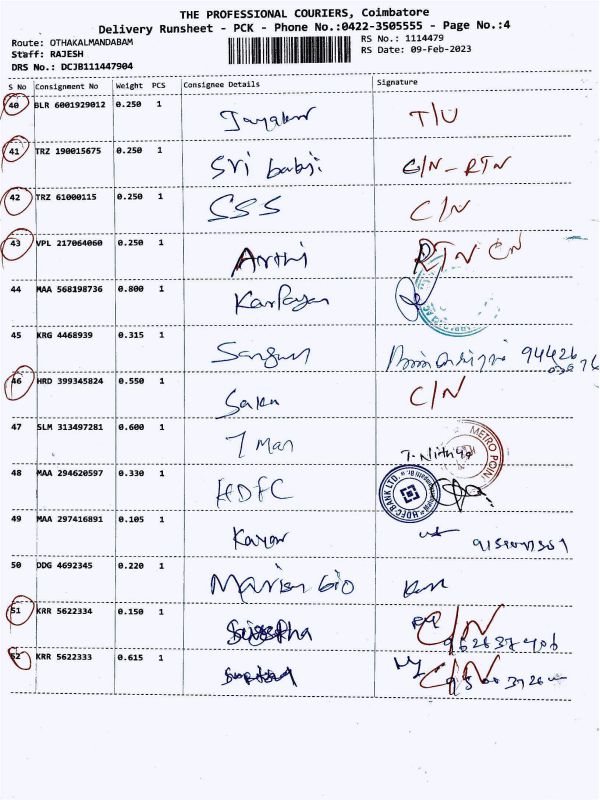 THE PROFESSIONAL COURIERS, Coimbatore
Delivery Runsheet - PCK - Phone No.:0422-3505555 - Page No.:4
Route: OTHAKALMANDABAM
Staff: RAJESH
DRS No.: DCJB111447904
RS No.: 1114479
RS Date: 09-Feb-2023
S No Consignment No Weight PCS Consignee Details Signature
40 BLR 6001929012 0.250 1 T/U
41 TRZ 190015675 0.250 1 Sri babji C/N-RTN
42 TRZ 61000115 0.250 1 SSS C/N
43 VPL 217064060 0.250 1 Arthi RTN CN
44 MAA 568198736 0.800 1
45 KRG 4468939 0.315 1 94426
46 HRD 399345824 0.550 1 C/N
47 SLM 313497281 0.600 1 7 Man T. Nithya METRO POIN
48 MAA 294620597 0.330 1 HDFC HDFC BANK LTD.
49 MAA 297416891 0.105 1
50 DDG 4692345 0.220 1 bio
51 KRR 5622334 0.150 1 C/N
52 KRR 5622333 0.615 1 C/N